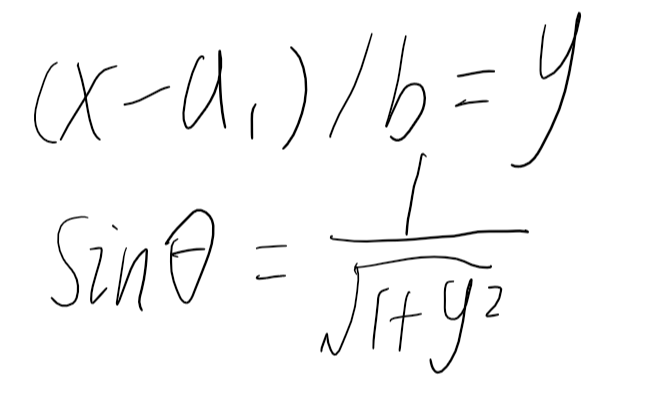 (x-a₁)/b=y
sinθ = 1/√(1+y²)